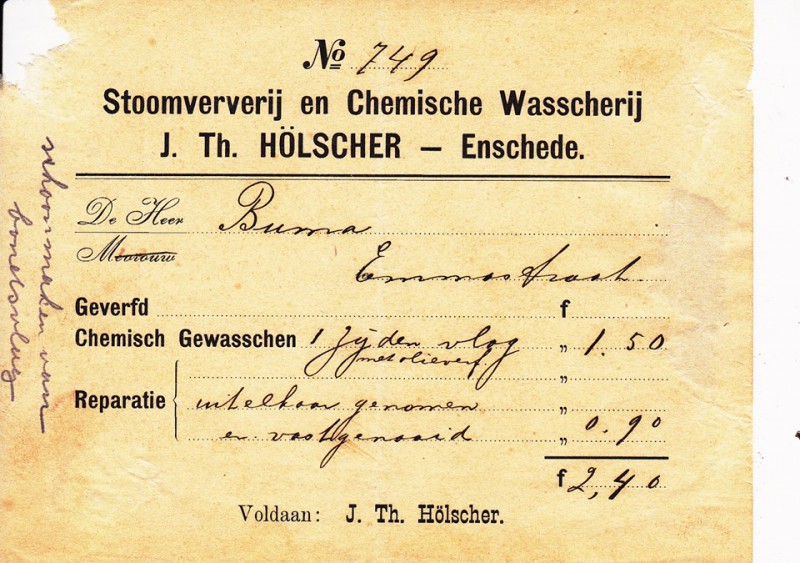 No 749
Stoomververij en Chemische Wasscherij
J. Th. HÖLSCHER — Enschede.
De Heer Buma
Mevrouw
Emmastraat.
Geverfd f
Chemisch Gewasschen 1 Zijden vlag „ 1.50
met olieverf „
Reparatie uitelkaar genomen „
en vastgenaaid „ 0.90
f 2,40
Voldaan: J. Th. Hölscher.
schoonmaken van